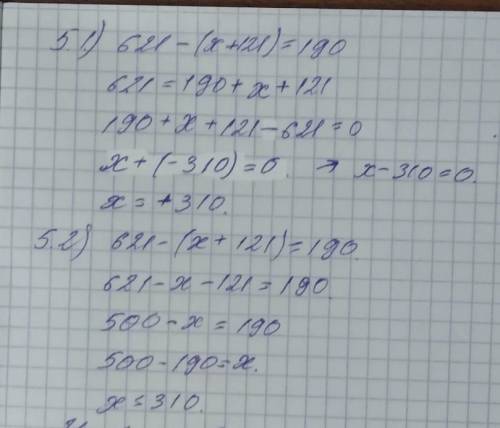 5.1) 621-(x+121)=190
621=190+x+121
190+x+121-621=0
x+(-310)=0. → x-310=0.
x=+310.
5.2) 621-(x+121)=190.
621-x-121=190.
500-x=190
500-190=x.
x=310.